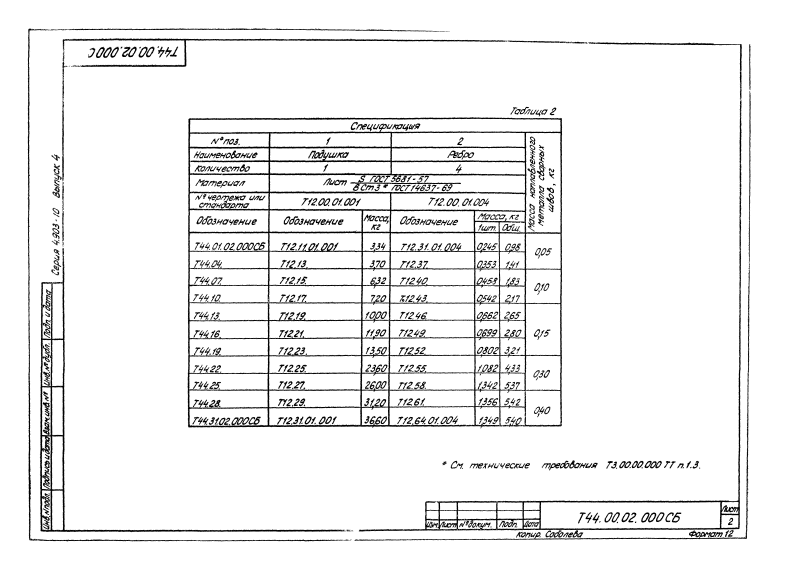 Т44.00.02.000С
Серия 4.903-10 Выпуск 4
Таблица 2
Спецификация
№ поз. 1 2 Масса наплавленного металла сварных швов, кг
Наименование Подушка Ребро
Количество 1 4
Материал Лист 5 ГОСТ 5681-57 / ВСт3 * ГОСТ 14637-69
№ чертежа или стандарта Т12.00.01.001 Т12.00.01.004
Обозначение Обозначение Масса, кг Обозначение Масса, кг
1шт. Общ.
Т44.01.02.000СБ Т12.11.01.001 3,34 Т12.31.01.004 0,245 0,98 0,05
Т44.04. Т12.13. 3,70 Т12.37. 0,353 1,41
Т44.07. Т12.15. 6,32 Т12.40. 0,458 1,83 0,10
Т44.10. Т12.17. 7,20 Т12.43. 0,542 2,17
Т44.13. Т12.19. 10,00 Т12.46. 0,662 2,65 0,15
Т44.16. Т12.21. 11,90 Т12.49. 0,699 2,80
Т44.19. Т12.23. 13,50 Т12.52. 0,802 3,21
Т44.22. Т12.25. 23,60 Т12.55. 1,082 4,33 0,30
Т44.25. Т12.27. 26,00 Т12.58. 1,342 5,37
Т44.28. Т12.29. 31,20 Т12.61. 1,356 5,42 0,40
Т44.31.02.000СБ Т12.31.01.001 36,60 Т12.64.01.004 1,349 5,40
* См. технические требования Т3.00.00.000 ТТ п.1.3.
Инв.№подл. Подпись и дата Взам.инв.№ Инв.№дубл. Подп. и дата
Изм Лист №докум. Подп. Дата
Т44.00.02.000СБ
Лист
2
Копир. Соболева Формат 12